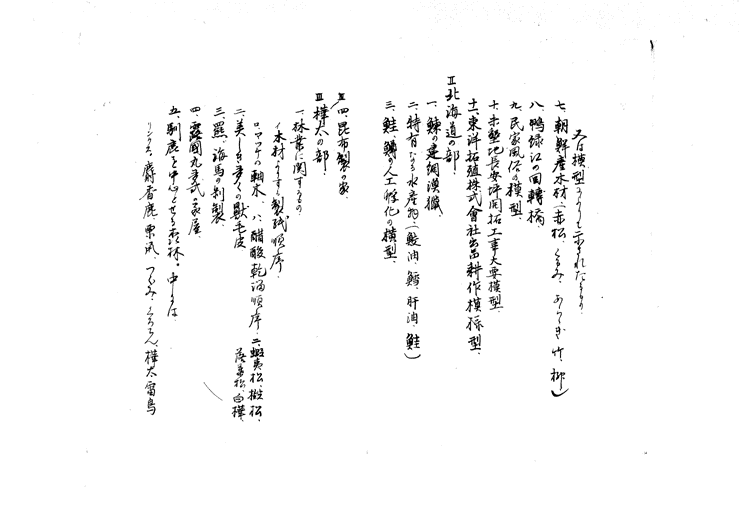 又は模型
七、朝鮮産木材（赤松、くるみ、竹、柳）
八、鴨緑江の回轉橋
九、民家風俗の模型、
十、未墾地長安坪開拓工事大要模型、
十一、東洋拓殖株式會社出品耕作模様型、
Ⅱ 北海道の部
一、鰊の建網漁獵
二、特有なる水産物、（鮫油、鱈肝油、鮭）
三、鮭、鱒の人工孵化の模型、
四、昆布製の家、
Ⅲ 樺太の部
一、林業に関するもの
イ、木材よりする製紙順序、
ロ、マッチの軸木、ハ、醋酸乾溜順序、ニ、蝦夷松、椴松、
落葉松、白樺、
二、美しき多くの獸毛皮
三、羆、海馬の剥製
四、露國丸太式の家屋、
五、馴鹿を中心とせる森林。中には、
麝香鹿、つぐみ、樺太雷鳥